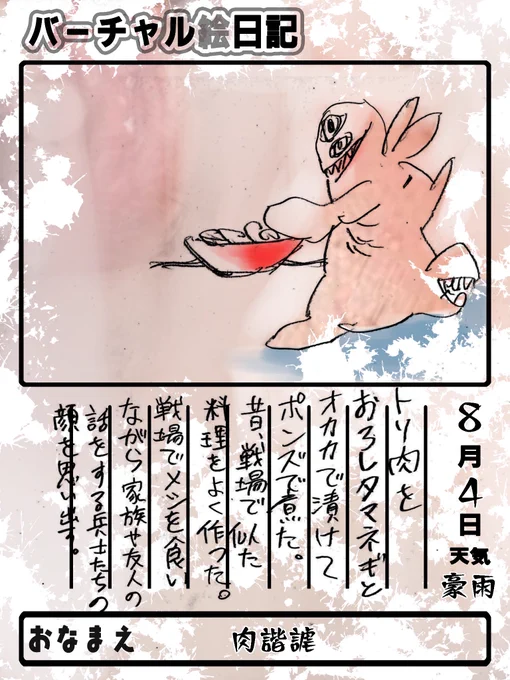 バーチャル絵日記
8月4日
天気
豪雨
トリ肉を
おろしタマネギと
オカカで漬けて
ポンズで煮た。
昔、戦場で似た
料理をよく作った。
戦場でメシを食い
ながら家族や友人の
話をする兵士たちの
顔を思い出す。
おなまえ
肉諧謔